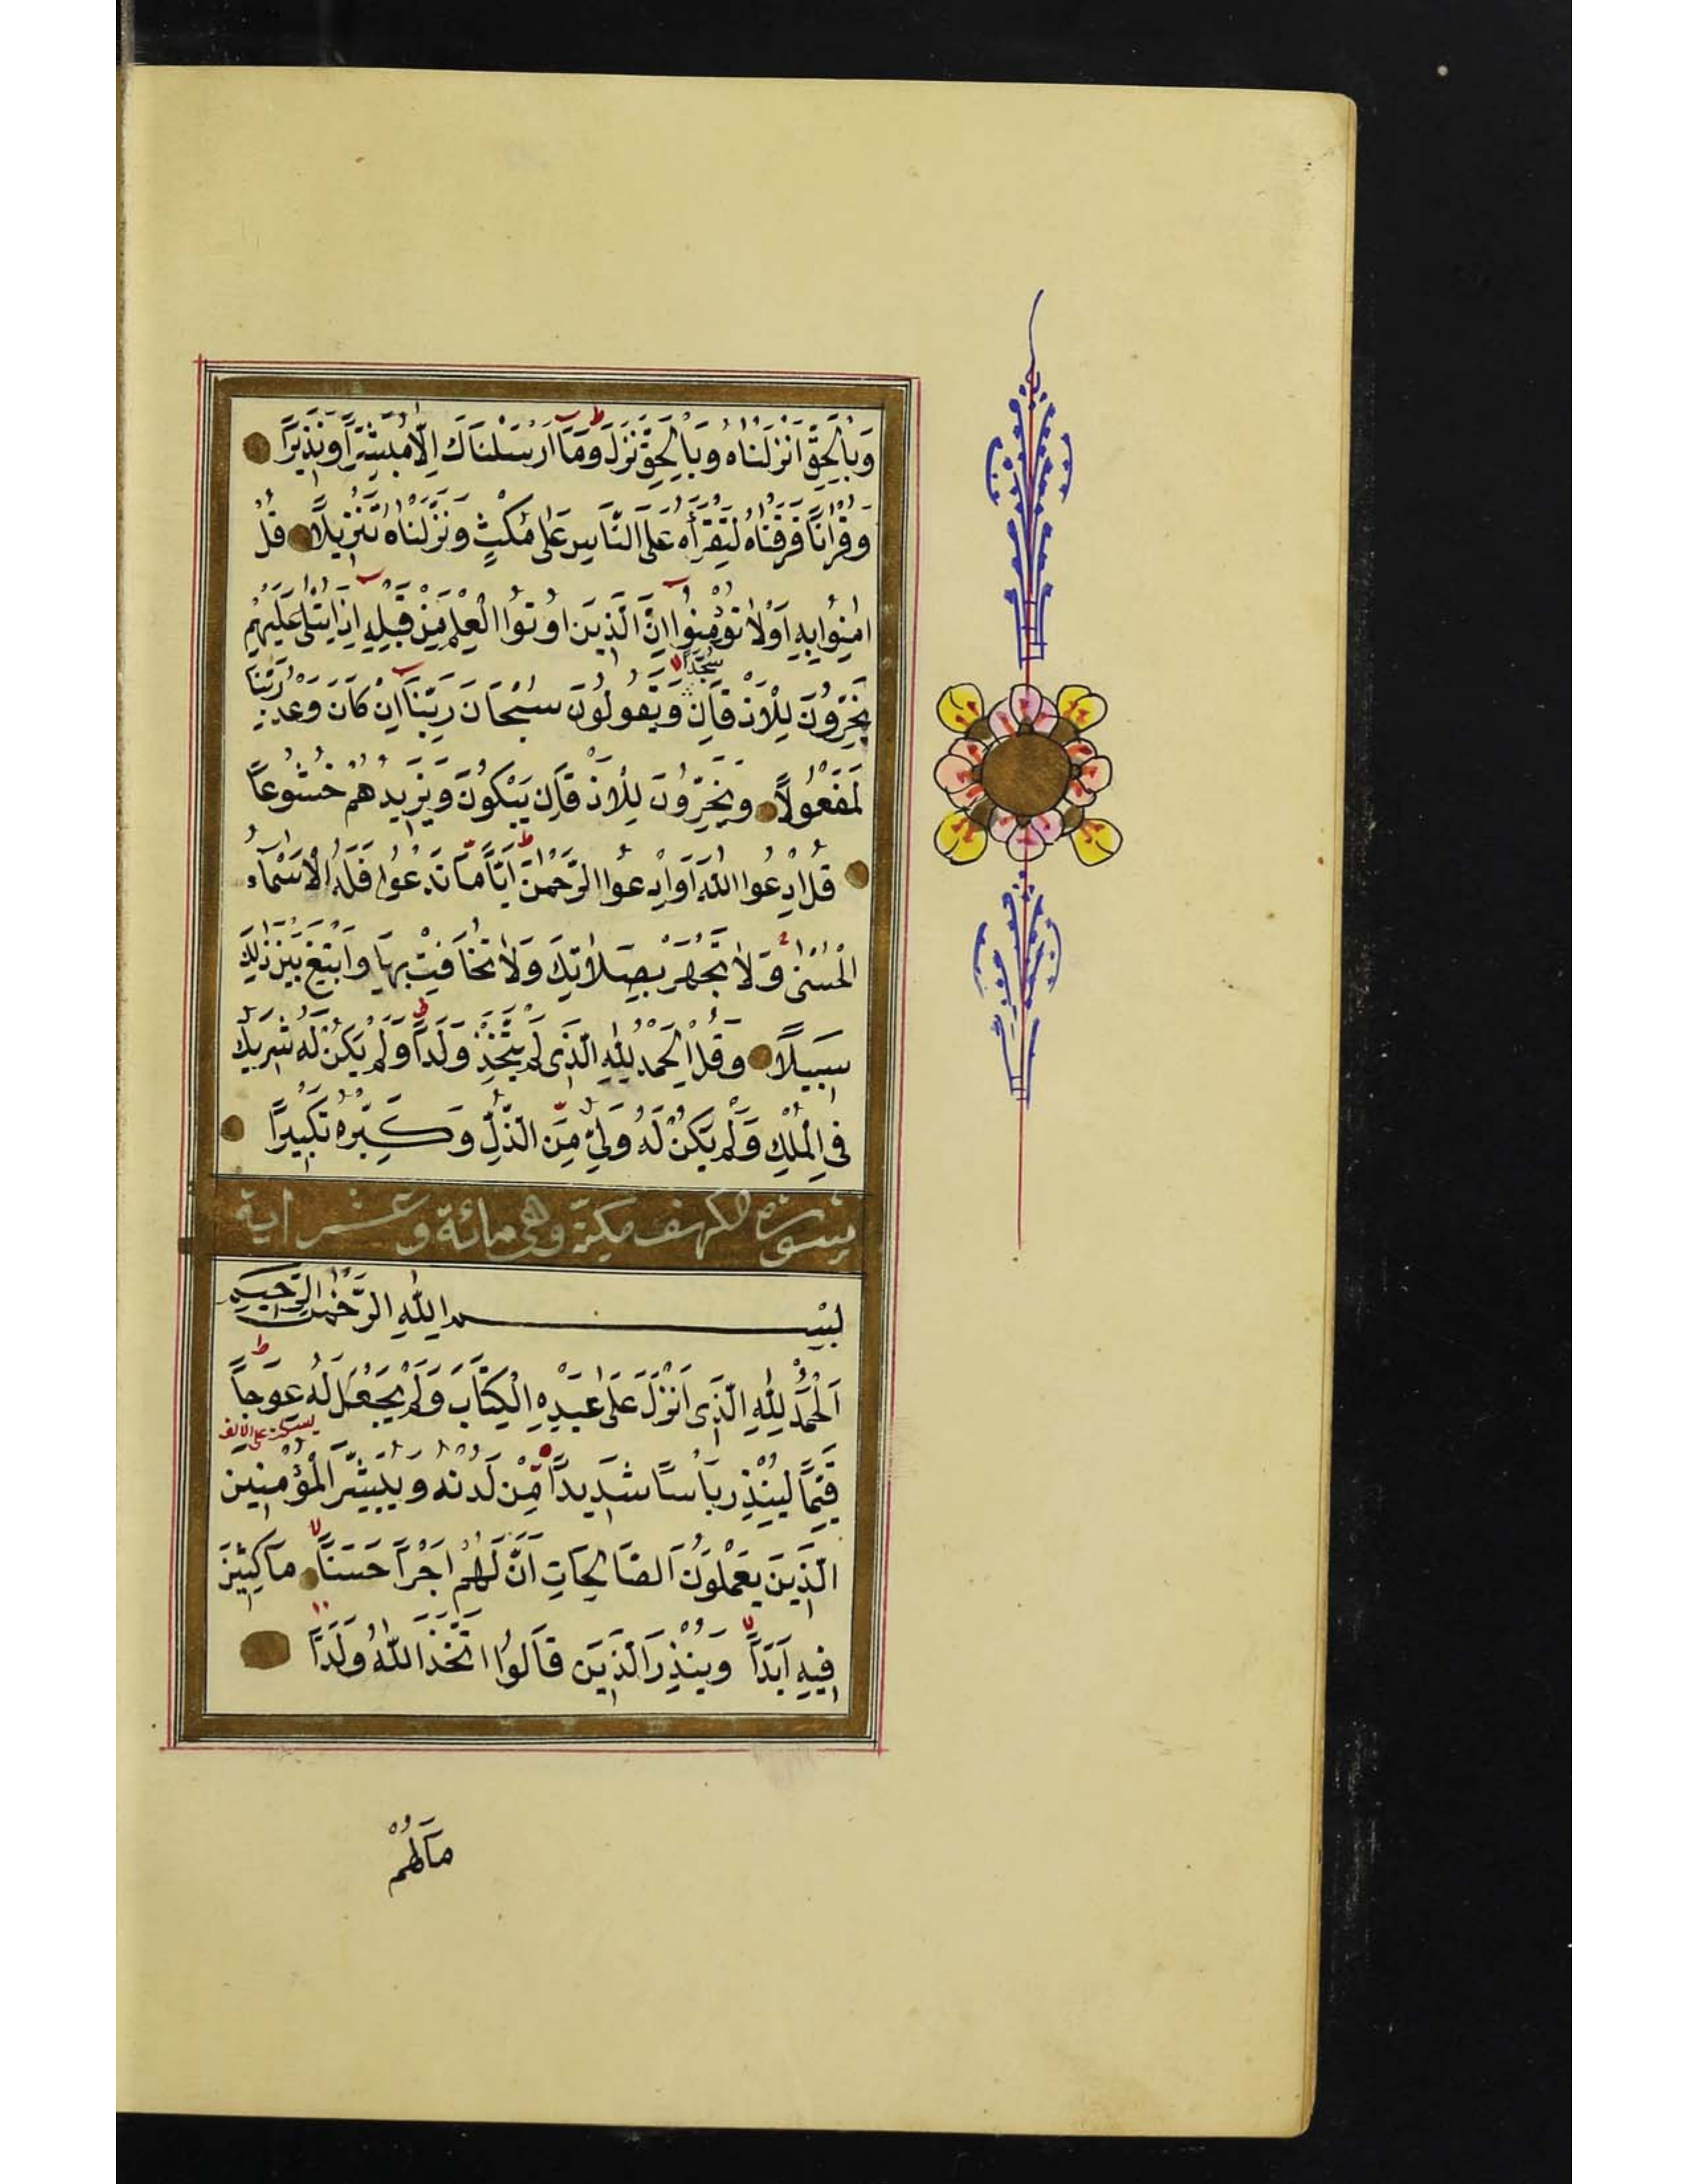 وَبِالْحَقِّ اَنْزَلْنَاهُ وَبِالْحَقِّ نَزَلَ وَمَٓا اَرْسَلْنَاكَ اِلَّا مُبَشِّرًا وَنَذِيرًا
وَقُرْاٰنًا فَرَقْنَاهُ لِتَقْرَاَهُ عَلَى النَّاسِ عَلٰى مُكْثٍ وَنَزَّلْنَاهُ تَنْزِيلًا قُلْ
اٰمِنُوا بِهِ اَوْ لَا تُؤْمِنُوا اِنَّ الَّذِينَ اُوتُوا الْعِلْمَ مِنْ قَبْلِهِ اِذَا يُتْلٰى عَلَيْهِمْ
سُجَّدًا
يَخِرُّونَ لِلْاَذْقَانِ وَيَقُولُونَ سُبْحَانَ رَبِّنَٓا اِنْ كَانَ وَعْدُ رَبِّنَا
لَمَفْعُولًا وَيَخِرُّونَ لِلْاَذْقَانِ يَبْكُونَ وَيَزِيدُهُمْ خُشُوعًا
قُلِ ادْعُوا اللّٰهَ اَوِ ادْعُوا الرَّحْمٰنَ اَيًّا مَّا تَدْعُوا فَلَهُ الْاَسْمَٓاءُ
الْحُسْنٰى وَلَا تَجْهَرْ بِصَلَاتِكَ وَلَا تُخَافِتْ بِهَا وَابْتَغِ بَيْنَ ذٰلِكَ
سَبِيلًا وَقُلِ الْحَمْدُ لِلّٰهِ الَّذِى لَمْ يَتَّخِذْ وَلَدًا وَلَمْ يَكُنْ لَهُ شَرِيكٌ
فِى الْمُلْكِ وَلَمْ يَكُنْ لَهُ وَلِىٌّ مِّنَ الذُّلِّ وَكَبِّرْهُ تَكْبِيرًا
سورة الكهف مكية وهى مائة وعشر اية
بِسْمِ اللّٰهِ الرَّحْمٰنِ الرَّحِيمِ
اَلْحَمْدُ لِلّٰهِ الَّذِى اَنْزَلَ عَلٰى عَبْدِهِ الْكِتَابَ وَلَمْ يَجْعَلْ لَهُ عِوَجًا
يسكت على الالف
قَيِّمًا لِيُنْذِرَ بَاْسًا شَدِيدًا مِّنْ لَدُنْهُ وَيُبَشِّرَ الْمُؤْمِنِينَ
الَّذِينَ يَعْمَلُونَ الصَّالِحَاتِ اَنَّ لَهُمْ اَجْرًا حَسَنًا مَاكِثِينَ
فِيهِ اَبَدًا وَيُنْذِرَ الَّذِينَ قَالُوا اتَّخَذَ اللّٰهُ وَلَدًا
مَالَهُمْ